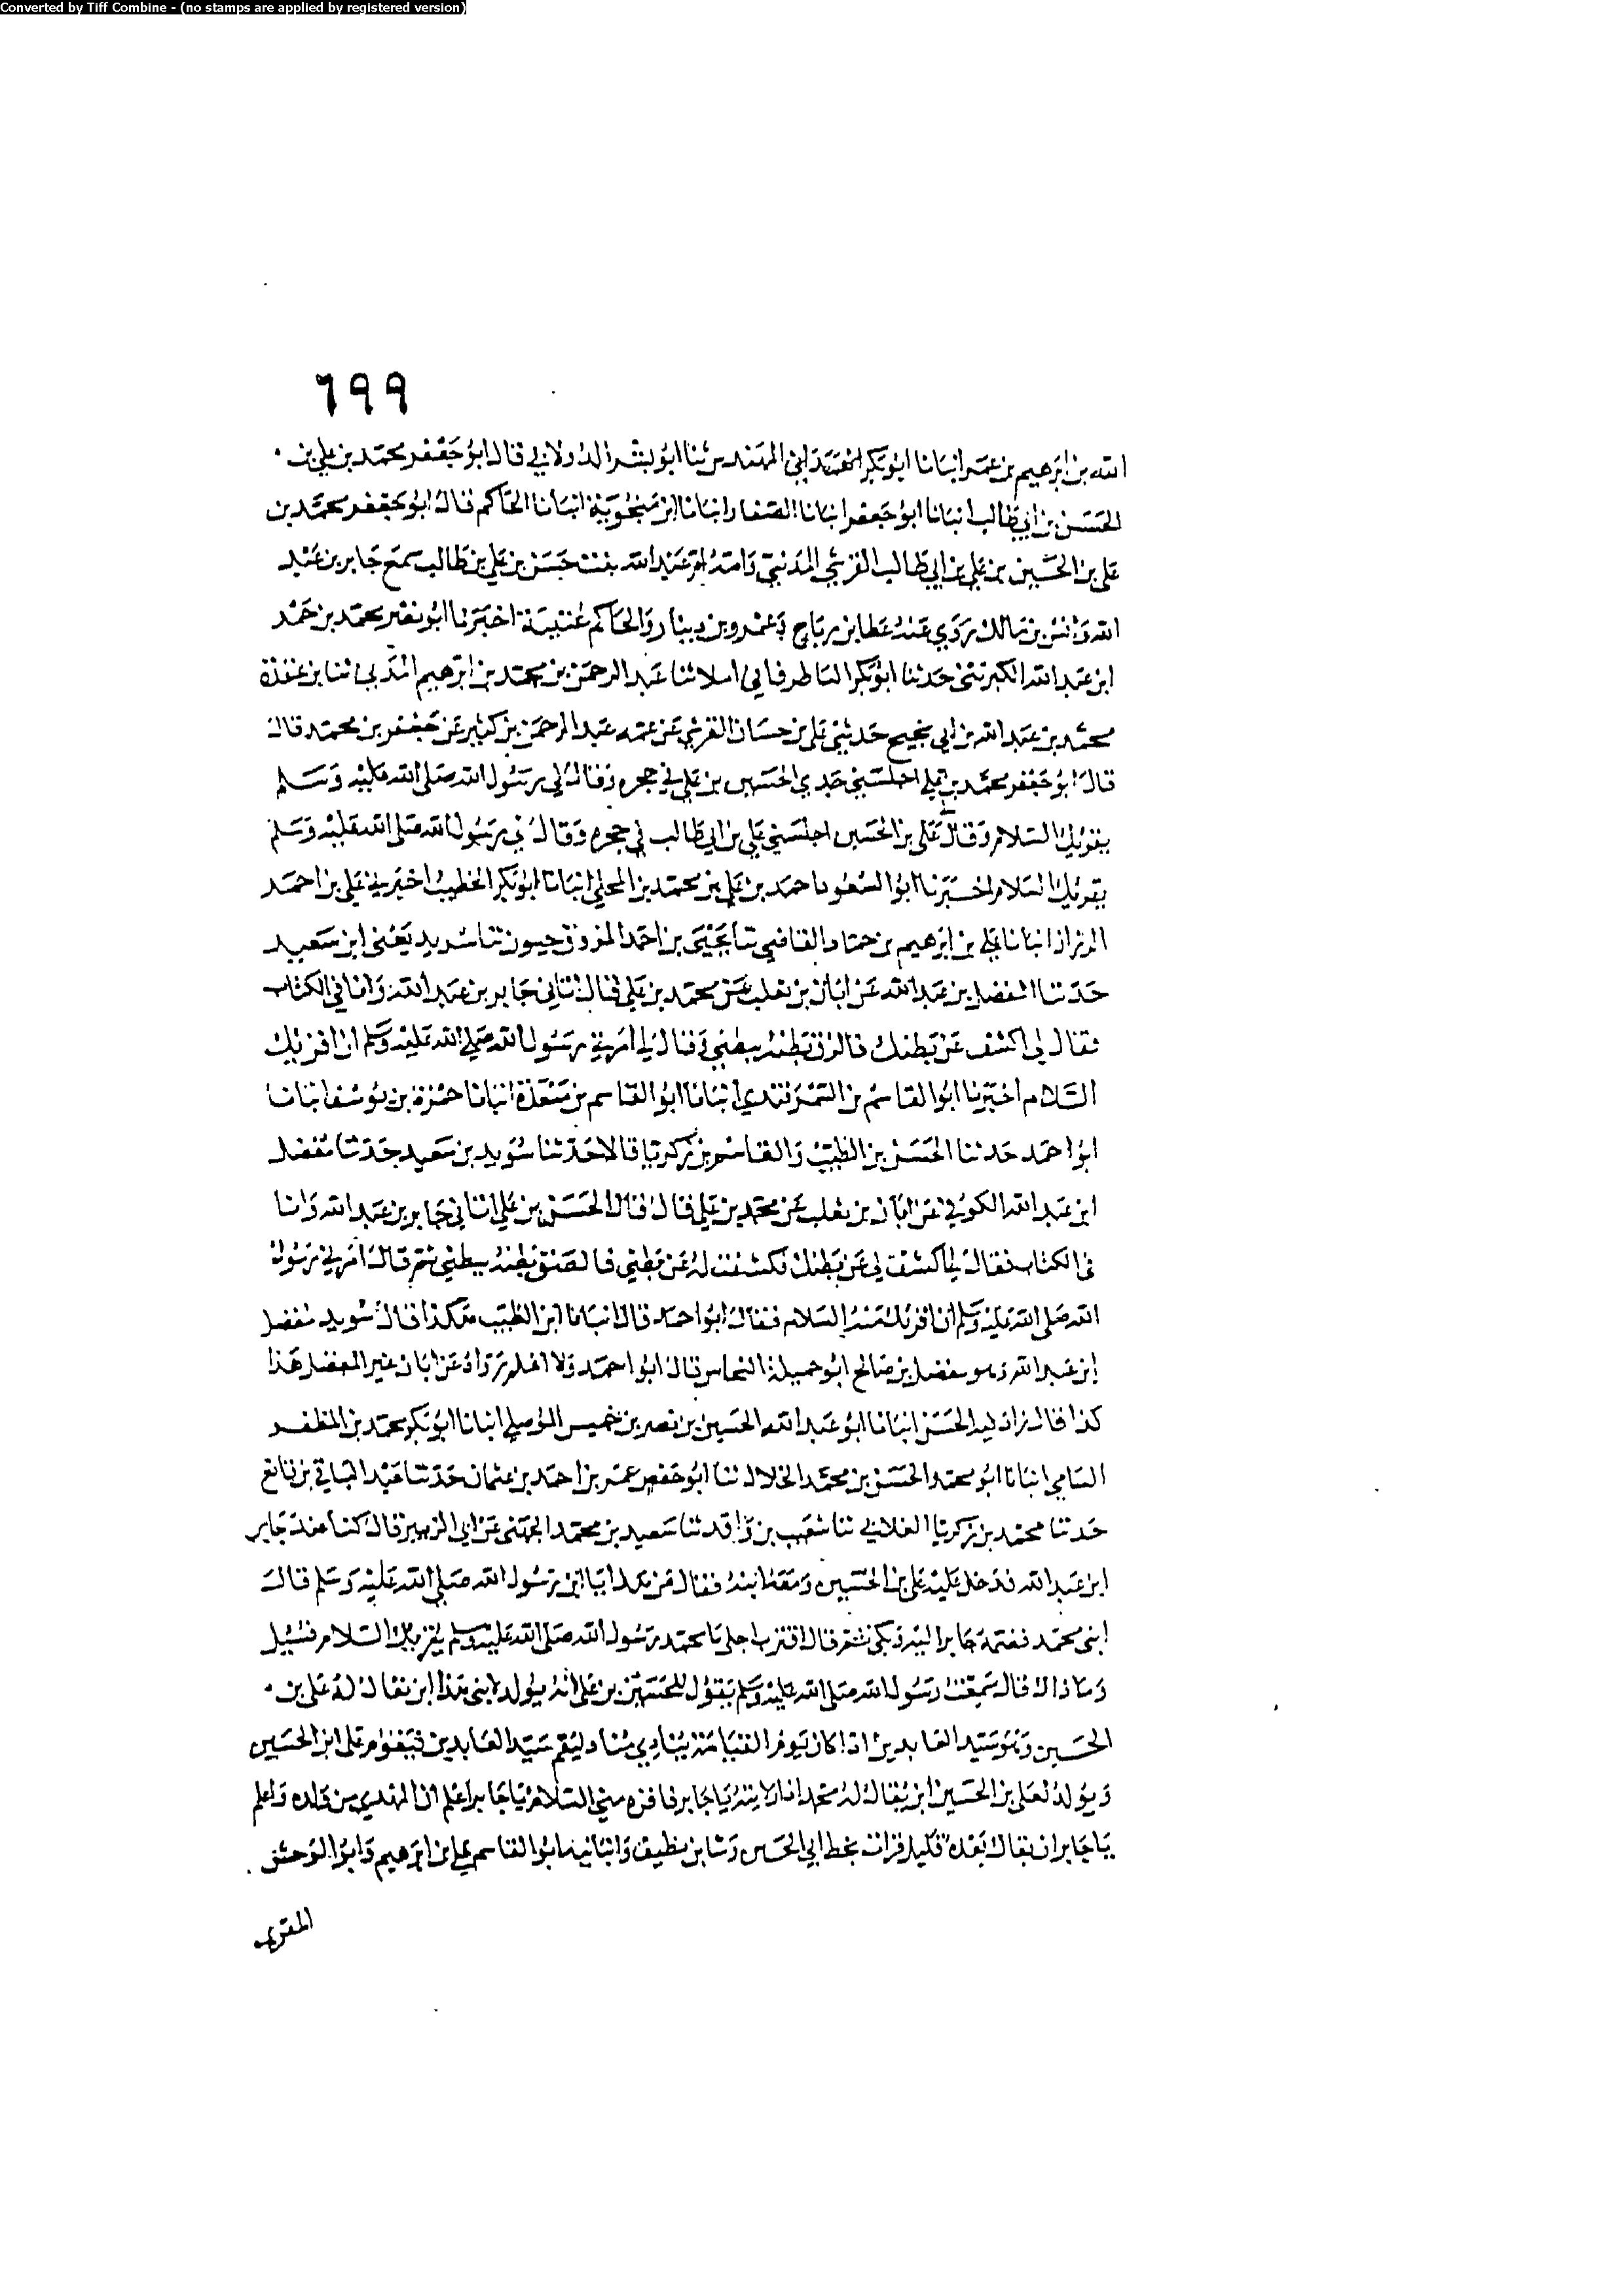 Converted by Tiff Combine - (no stamps are applied by registered version)
٦٩٩
الله بن ابرهيم بن عمر انبانا ابو بكر المهندس ثنا ابو بشر الدولابي قال ابو جعفر محمد بن علي بن
الحسن بن ابي طالب انبانا ابو جعفر انبانا الصفار انبانا ابن منجوية انبانا الحاكم قال ابو جعفر محمد بن
علي بن الحسين بن علي بن ابي طالب القرشي المدني وامه ام عبد الله بنت حسن بن علي بن طالب سمع جابر بن عبد
الله وانس بن مالك روي عنه عطا بن رباح وعمرو بن دينار والحاكم عتيبة اخبرنا ابو نصر محمد بن حمد
ابن عبد الله الكبريتي حدثنا ابو بكر الباطرقاني املا ثنا عبد الرحمن بن محمد بن ابرهيم المدني ثنا بن عقدة
محمد بن عبد الله بن ابي نجيح حدثني علي بن حسان القرشي عن عمه عبد الرحمن بن كثير عن جعفر بن محمد قال
قال ابو جعفر محمد بن علي اجلسني جدي الحسين بن علي في حجره وقال لي رسول الله صلى الله عليه وسلم
يقرئك السلام وقال علي بن الحسين اجلسني علي بن ابي طالب في حجره وقال لي رسول الله صلى الله عليه وسلم
يقرئك السلام اخبرنا ابو السعود احمد بن علي بن محمد بن المجلي انبانا ابو بكر الخطيب اخبرني علي بن احمد
الرزاز انبانا علي بن ابرهيم بن حماد القاضي ثنا يحيى بن احمد المزوق حيون ثنا سويد يعني ابن سعيد
حدثنا المفضل بن عبد الله عن ابان بن تغلب عن محمد بن علي قال اتاني جابر بن عبد الله وانا في الكتاب
فقال لي اكشف عن بطنك فالزق بطنه ببطني وقال لي امرني رسول الله صلى الله عليه وسلم ان اقريك
السلام اخبرنا ابو القاسم بن السمرقندي انبانا ابو القاسم بن مسعدة انبانا حمزة بن يوسف انبانا
ابو احمد حدثنا الحسن بن الطيب والقاسم بن زكريا قالا حدثنا سويد بن سعيد حدثنا مفضل
ابن عبد الله الكوفي عن ابان بن تغلب عن محمد بن علي قال قال الحسن بن علي اتاني جابر بن عبد الله وانا
في الكتاب فقال لي اكشف لي عن بطنك فكشفت له عن بطني فالصق بطنه ببطني ثم قال امرني رسول
الله صلى الله عليه وسلم ان اقرئك منه السلام فقال ابو احمد قال انبانا ابن الطيب هكذا قال سويد مفضل
ابن عبد الله وهو مفضل بن صالح ابو جميلة النخاس قال ابو احمد ولا اعلم رواه عن ابان غير المفضل هذا
كذا قال زاد فيه الحسن انبانا ابو عبد الله الحسين بن نصر بن خميس الموصلي انبانا ابو بكر محمد بن المظفر
الشامي انبانا ابو محمد الحسن بن محمد الخلال ثنا ابو حفص عمر بن احمد بن عثمان حدثنا عبد الباقي بن قانع
حدثنا محمد بن زكريا الغلابي ثنا شعيب بن واقد ثنا سعيد بن محمد الجهني عن ابي الزبير قال كنا عند جابر
ابن عبد الله فدخل عليه علي بن الحسين ومعه ابنه فقال من هذا يا ابن رسول الله صلى الله عليه وسلم قال
ابني محمد فضمه جابر اليه وبكى ثم قال اقترب اجلي يا محمد رسول الله صلى الله عليه وسلم يقرئك السلام فسئل
وما ذاك قال سمعت رسول الله صلى الله عليه وسلم يقول للحسين بن علي انه يولد لابني هذا ابن يقال له علي بن
الحسين وهو سيد العابدين اذا كان يوم القيامة ينادي مناد ليقم سيد العابدين فيقوم علي ابن الحسين
ويولد لعلي بن الحسين ابن يقال له محمد اذا رايته يا جابر فاقره مني السلام يا جابر اعلم ان المهدي من ولده واعلم
يا جابر ان بقاك بعده قليل قرات بخط ابي الحسن رشا بن نظيف وانبانيه ابو القاسم علي بن ابرهيم وابو الوحش
المقري